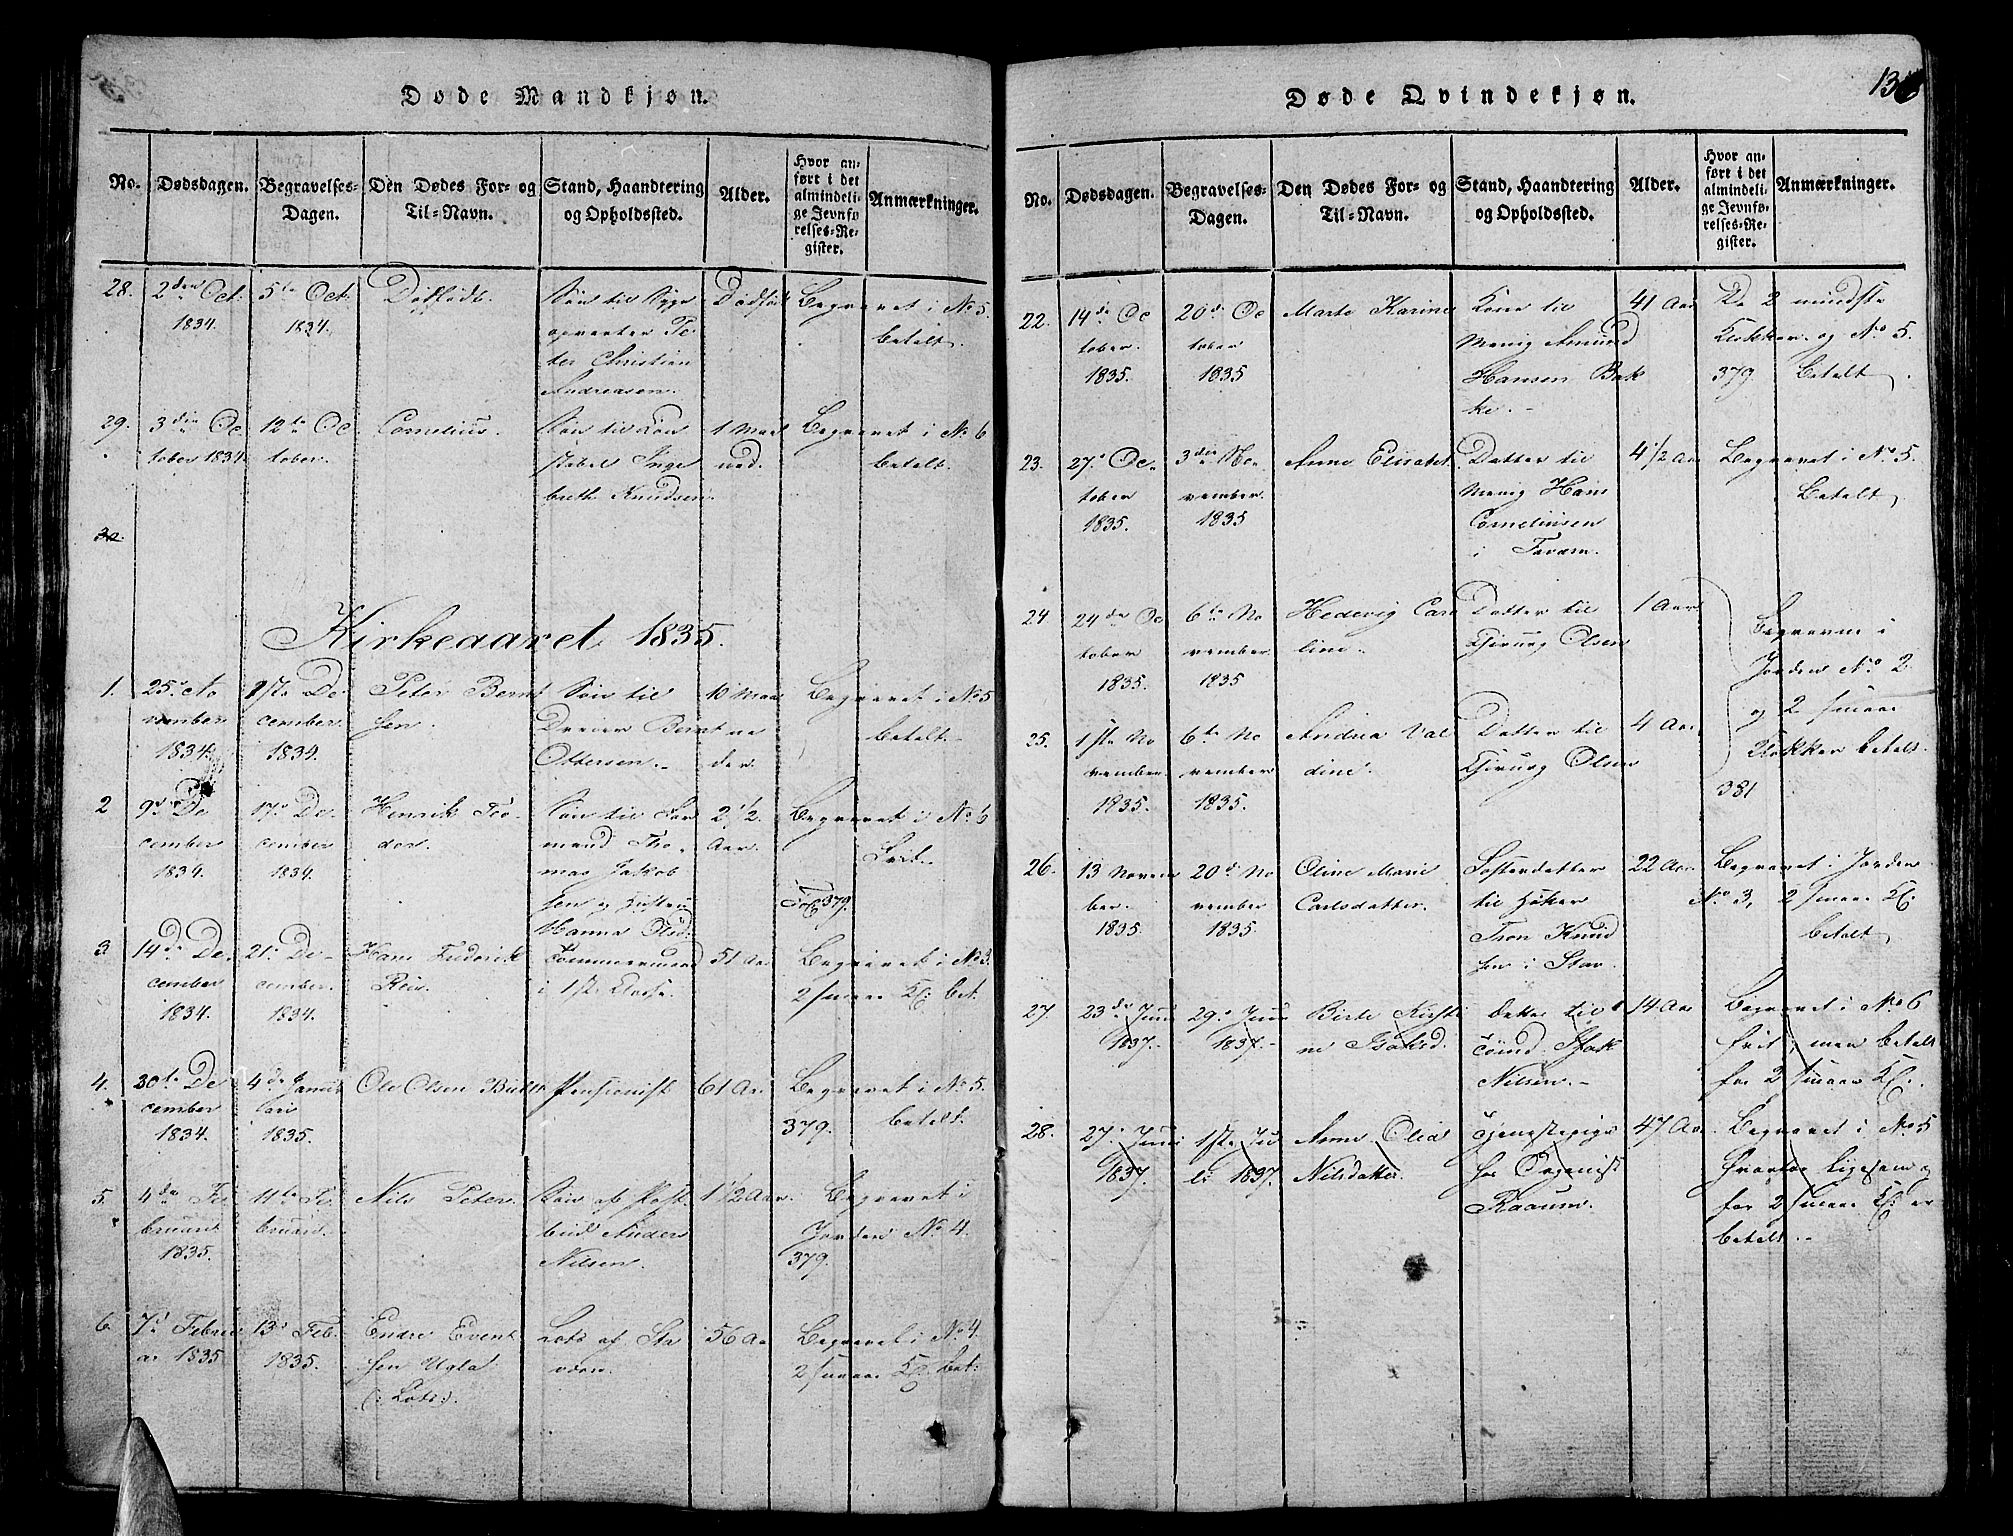 Døde Mandkjøn.
No.
Dødsdagen.
Begravelses-
Dagen.
Den Dødes For- og
Til-Navn.
Stand, Haandtering
og Opholdssted.
Alder.
Hvor an-
ført i det
almindeli-
ge Jevnfø-
relses-Re-
gister.
Anmærkninger.
28.
2den Oct.
1834.
5te Oct.
1834.
Dødfødt.
Søn til Syge
opvarter Pe
ter Christian
Andreasen.
Dødfødt
Begravet i No 5.
betalt.
29.
3die Oc
tober 1834.
12te Oc
tober.
Cornelius.
Søn til Con
stabel Inge
breth Knudsen.
1 Maa
ned.
Begravet i No 6
betalt.
30.
Kirkeaaret 1835.
1.
25. No
vember
1834.
1ste De
cember
1834.
Peter Bernt
sen.
Søn til
Dreier Bernt
Ottersen.
10 Maa
ne
der.
Begravet i No 5
betalt.
2
9de De
cember
1834.
17de De
cember
1834.
Henrik Teo
dor.
Søn til For
mand Tho
mas Jakob
sen og Hustru
Hanna Olsd:
2 1/2
Aar.
Begravet i No 6
frit.
Fol 379.
3
14de De
cember
1834.
21de De-
cember.
1834.
Hans Frederik
Tømmermand
i 1ste Classe.
51 Aar
Begravet i No 3.
2 smaae Kl: bet.
4.
30te De
cember
1834.
4de Janu
ari
1835.
Ole Olsen
Pensionist
61 Aar
Begravet i No 5.
379. betalt.
5.
4de Fe
bruari
1835.
11te Fe
bruari.
Nils Peter.
Søn af Post
bud Anders
Nilsen.
1 1/2 Aar.
Begravet i
Jorden No 4.
379.
6.
7de Febru
ar 1835
13de Feb.
1835.
Endre Event
sen Ugla
(: Lots:)
Lots af Sta
væren.
56 Aar
Begravet i No 4.
2 smaae Kl. bet:
136
Døde Qvindekjøn.
No.
Dødsdagen.
Begravelses-
Dagen.
Den Dødes For- og
Til-Navn.
Stand, Haandtering
og Opholdssted.
Alder.
Hvor an-
ført i det
almindeli-
ge Jevnfø-
relses-Re-
gister.
Anmærkninger.
22.
14de Oc
tober.
1835.
20de Oc
tober
1835
Marte Karine
Kone til
Menig Amund
Hansen Bak
ke.
41 Aar
De 2 mindste
Klokker og No 5.
379. Betalt.
23.
27. Oc-
tober
1835.
3die No-
vember
1835
Anne Elisabet.
Datter til
Menig Hans
Corneliusen
i
4 1/2 Aar
Begravet i No 5.
Betalt.
24
24de Oc
tober
1835.
6te No
vember
1835
Hedevig Caro
line.
Datter til
Chirurg Olsen
1 Aar
Begravne i
Jorden No 2.
og 2 smaae
Klokker betalt.
381
25.
1ste No
vember.
1835.
6te No
vember
1835.
Andrea Val
dine.
Datter til
Chirurg Olsen
4 Aar.
26.
13 Novem
ber.
1835.
20de No
vember
1835.
Oline Marie
Carlsdatter.
Søsterdatter
til Høker
Tron Knud
sen i
22 Aar
Begravet i Jorden
No 3, 2 smaae Kl.
betalt
27.
23de Juni
1837.
29de Juni
1837.
Birte Kirsti
ne Isaksd.
Datter til
Tømd. Isak
Nilsen.
14 Aar
Begravet i No 6
frit, men betalt
for 2 smaae Kl.
28.
27. Juni
1837.
1ste Ju
li 1837.
Anne Olea
Nilsdatter.
Tjenestepige
hos Organist
Raaum.
47 Aar.
Begravet i No 5
hvorfor ligesom og
for 2 smaae Kl: er
betalt.